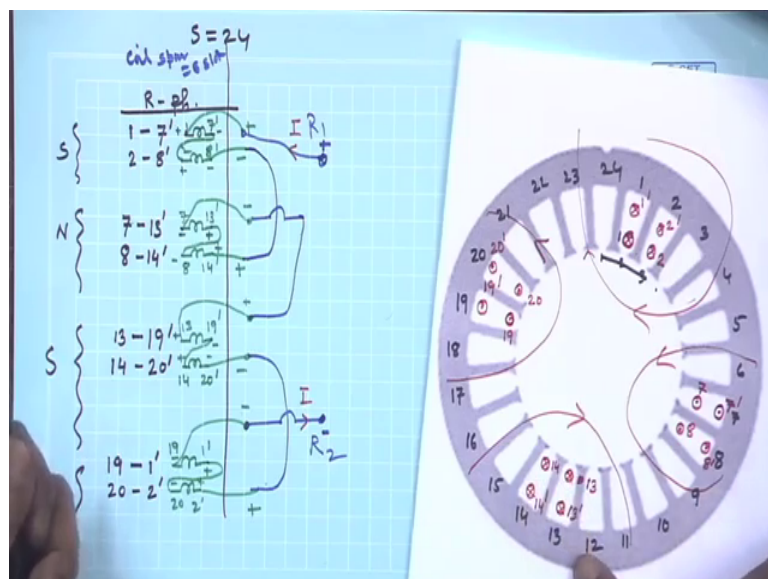 S = 24
coil span
= 6 slots
R-ph.
S
1 - 7' + 1 7' - + I R1 +
2 - 8' + 8' - -
N
7 - 13' 7 13' - -
8 - 14' 8 14' +
S
13 - 19' + 13 19' - +
14 - 20' + 14 20' - -
19 - 1' 19 1' + - I R2 -
20 - 2' 20 2' +
24
1
2
3
4
5
6
7
8
9
10
11
12
13
14
15
16
17
18
19
20
21
22
23
1'
1
2'
2
7
7'
8
8'
13
13'
14
14'
19'
19
20'
20